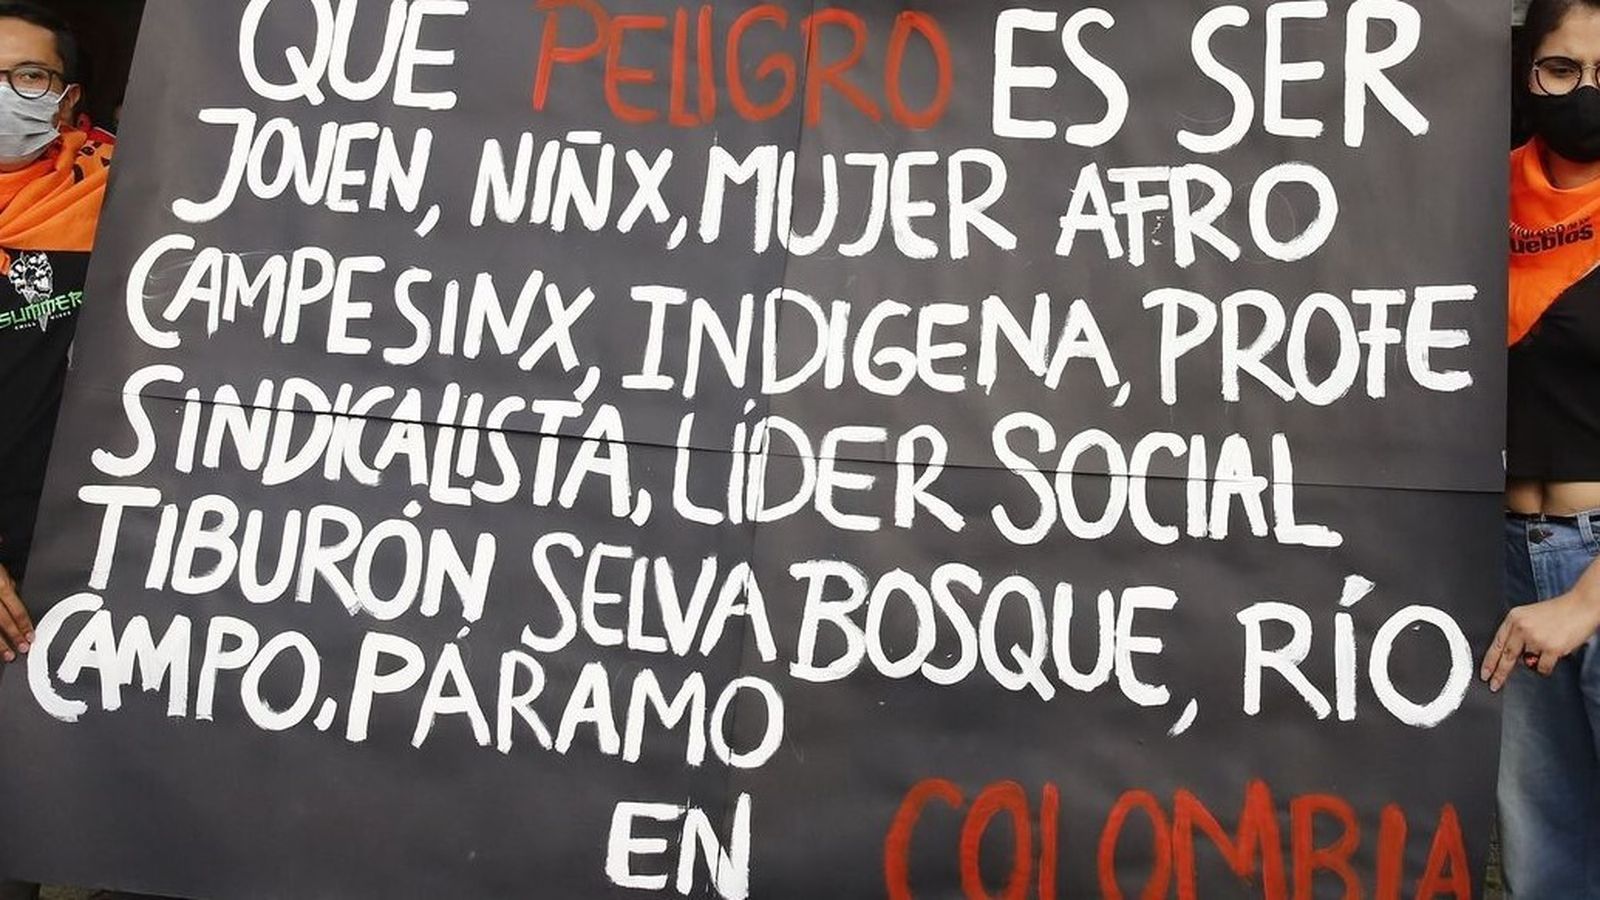 QUE PELIGRO ES SER
JOVEN, NIÑX, MUJER AFRO
CAMPESINX, INDIGENA, PROFE
SINDICALISTA, LÍDER SOCIAL
TIBURÓN SELVA BOSQUE, RÍO
CAMPO, PÁRAMO
EN COLOMBIA
SUMMER
ueblos